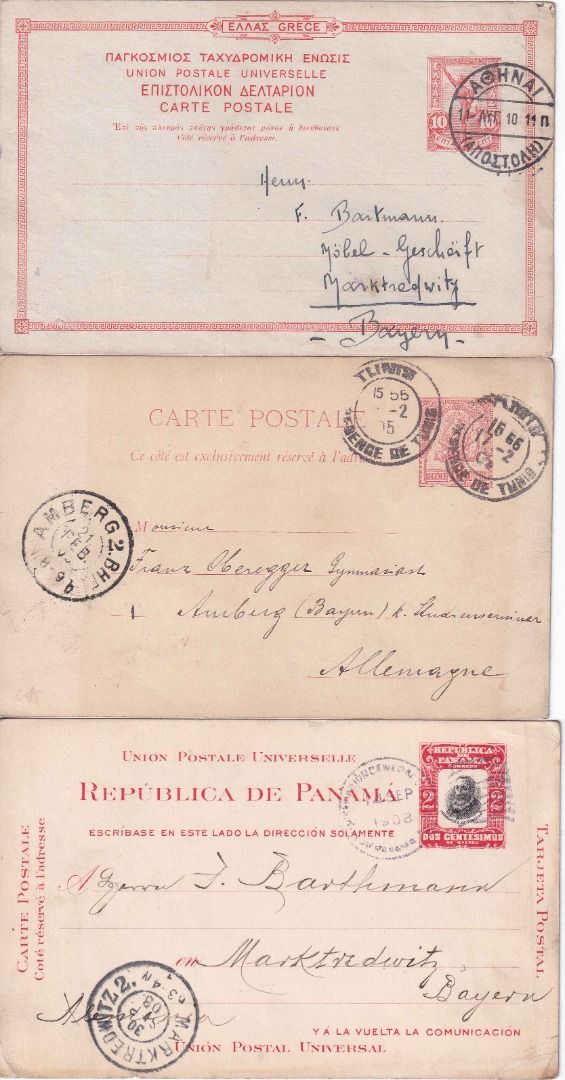 ΕΛΛΑΣ GRÈCE
ΠΑΓΚΟΣΜΙΟΣ ΤΑΧΥΔΡΟΜΙΚΗ ΕΝΩΣΙΣ
UNION POSTALE UNIVERSELLE
ΕΠΙΣΤΟΛΙΚΟΝ ΔΕΛΤΑΡΙΟΝ
CARTE POSTALE
Ἐπὶ τῆς πλευρᾶς ταύτης γράφεται μόνον ἡ διεύθυνσις
Côté réservé à l'adresse.
10
ΑΘΗΝΑΙ
10 11 Π
(ΑΠΟΣΤΟΛΗ)
Herrn
F. Bartmann.
Möbel-Geschäft
Marktredwitz
- Bayern -
TUNIS
15 55
-2
05
REGENCE DE TUNIS
TUNIS
15 55
-2
REGENCE DE TUNIS
CARTE POSTALE
Ce côté est exclusivement réservé à l'adresse
AMBERG 2. BHF
21
FEB.
Monsieur
Franz Oberegger Gymnasiast
Amberg (Bayern) k. Studienseminar
Allemagne
UNION POSTALE UNIVERSELLE
REPÚBLICA DE PANAMÁ
ESCRÍBASE EN ESTE LADO LA DIRECCIÓN SOLAMENTE
REPUBLICA
DE
PANAMA
CORREOS
2 2
DOS CENTESIMOS
DE BALBOA
SEP
1908
CARTE POSTALE
Coté réservé à l'adresse
TARJETA POSTAL
A Herrn J. Barthmann
en Marktredwitz
Bayern
MARKTREDWITZ 2.
30
08
Y A LA VUELTA LA COMUNICACIÓN
UNIÓN POSTAL UNIVERSAL